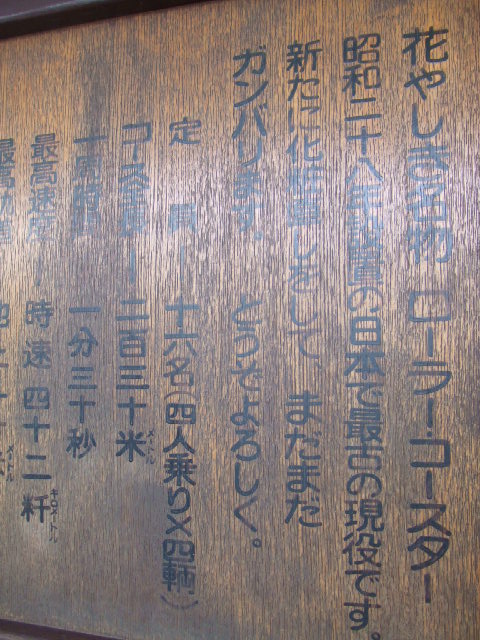 花やしき名物 ローラー・コースター
昭和二十八年設置の日本で最古の現役です。
新たに化粧直しをして、まだまだ
ガンバります。 どうぞよろしく。
定員ー 十六名(四人乗り×四輌)
コース全長ー 二百三十米 メートル
一周時間ー 一分三十秒
最高速度ー 時速四十二粁 キロメートル
最高 地上 メートル